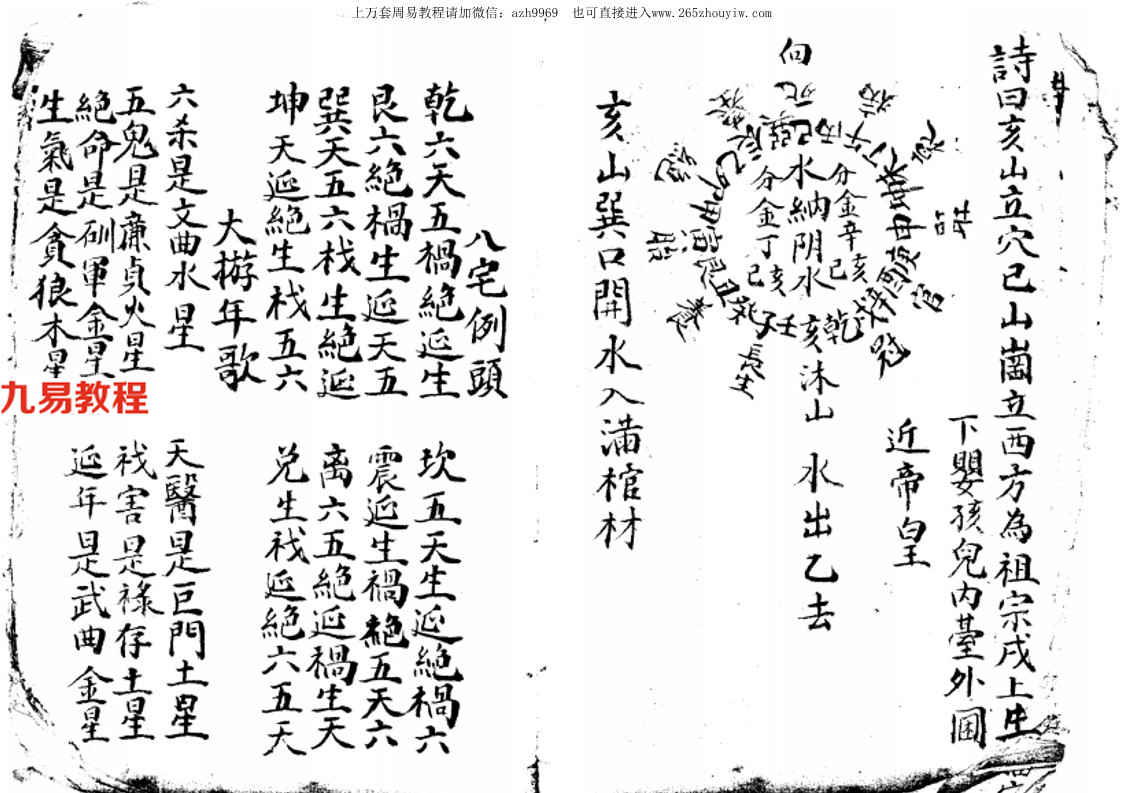 上万套周易教程请加微信：azh9969　也可直接进入www.265zhouyiw.com
詩曰亥山立穴巳山崗立西方為祖宗戌上生
下嬰孩兒内臺外圍
近帝皇
向
水納阴水
分金辛巳亥
分金丁巳亥
亥沐山　水出乙去
長生
養
冠
官
亥山巽口開水入满棺材
八宅例頭
乾六天五禍絶延生
坎五天生延絶禍六
艮六絶禍生延天五
震延生禍絶五天六
巽天五六栈生絶延
离六五絶延禍生天
坤天延絶生栈五六
兑生祅延絶六五天
大遊年歌
六杀是文曲水星
天醫是巨門土星
五鬼是廉貞火星
祅害是祿存土星
絶命是破軍金星
延年是武曲金星
生氣是貪狼木星
九易教程